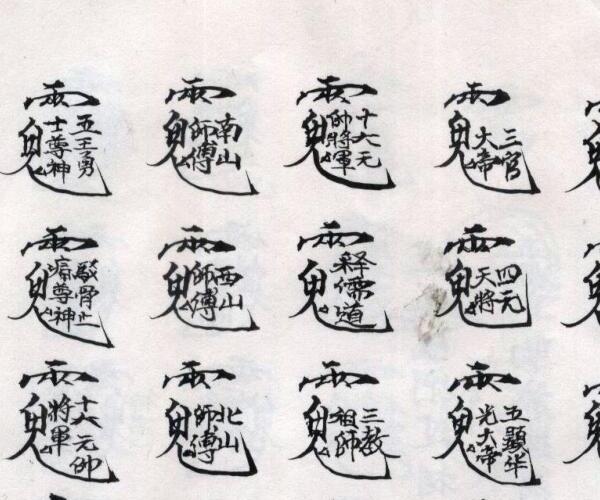 雨鬼三官大帝
雨鬼四元天將
雨鬼五顯華光大帝
雨鬼十六元帥將軍
雨鬼释儒道
雨鬼三教祖師
雨鬼南山師傅
雨鬼西山師傅
雨鬼北山師傅
雨鬼五王勇士尊神
雨鬼駁骨止痛尊神
雨鬼十六元帥將軍